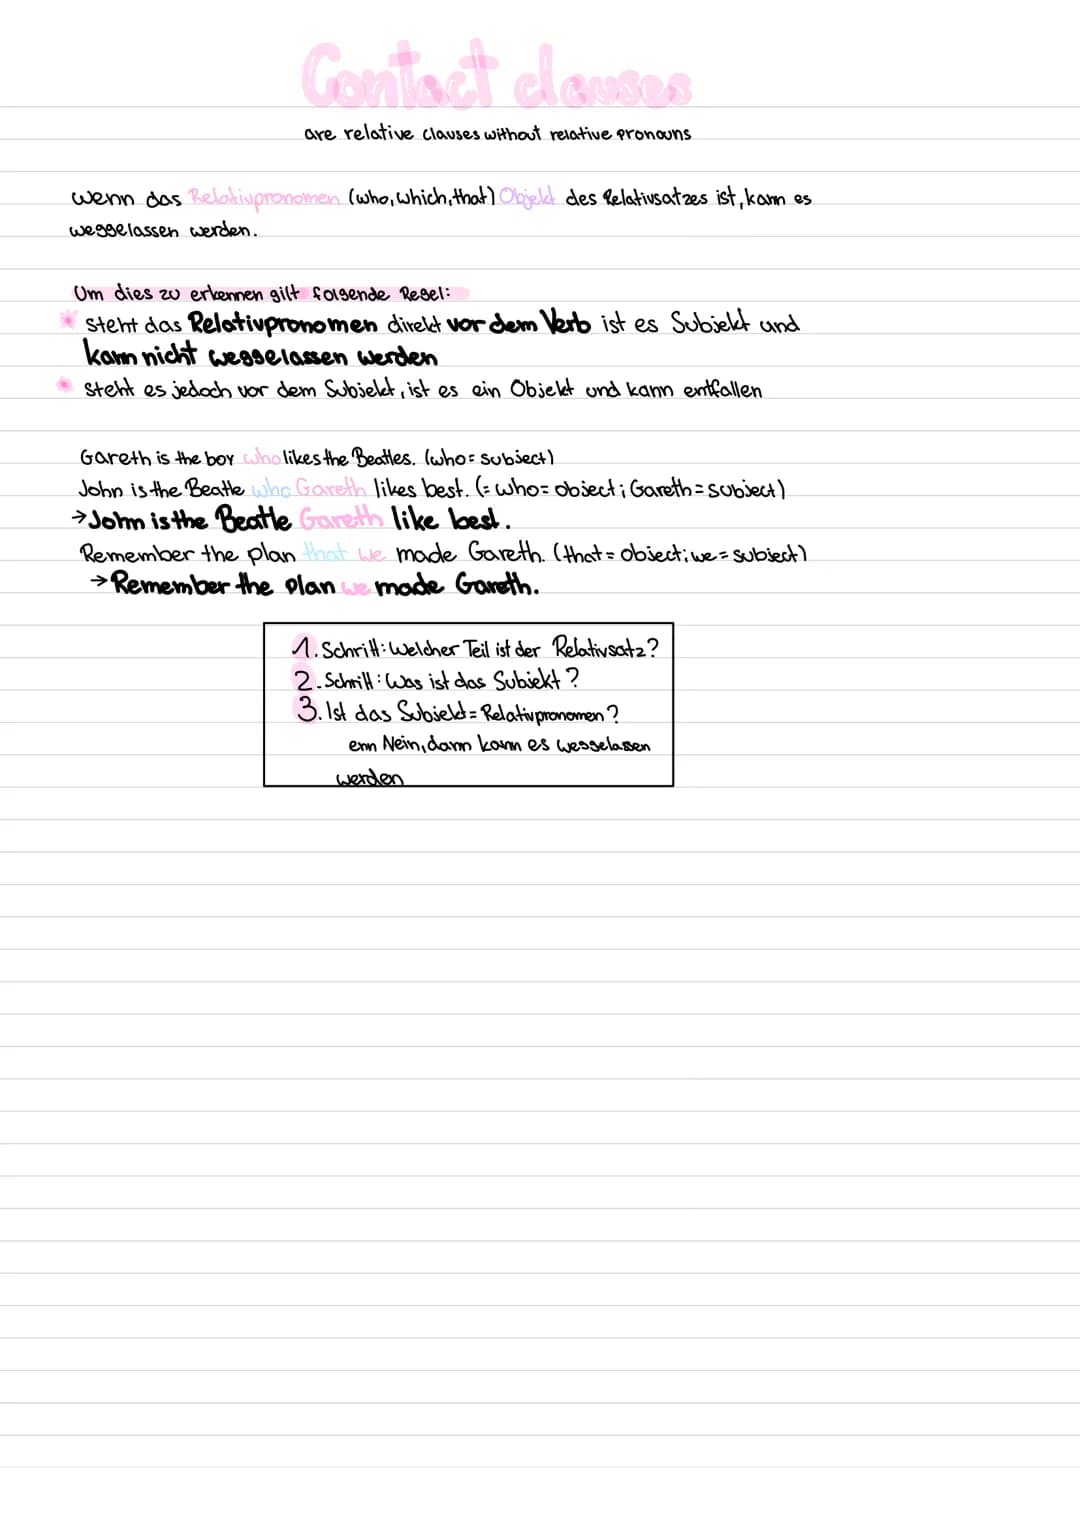 Contact clauses
are relative clauses without relative pronouns
Wenn das Relativpronomen (who, which, that) Objekt des Relativsatzes ist, kann es
weggelassen werden.
Um dies zu erkennen gilt folgende Regel:
steht das Relativpronomen direkt vor dem Verb ist es Subjekt und
kann nicht weggelassen werden
Steht es jedoch vor dem Subjekt, ist es ein Objekt und kann entfallen
Gareth is the boy who likes the Beatles. (who = subject)
John is the Beatle who Gareth likes best. (= who = object; Gareth = subject)
→ John is the Beatle Gareth like best.
Remember the plan that we made Gareth. (that = object; we = subject)
→ Remember the plan we made Gareth.
1. Schritt: Welcher Teil ist der Relativsatz?
2. Schritt: Was ist das Subjekt?
3. Ist das Subjekt = Relativpronomen?
enn Nein, dann kann es weggelassen
werden